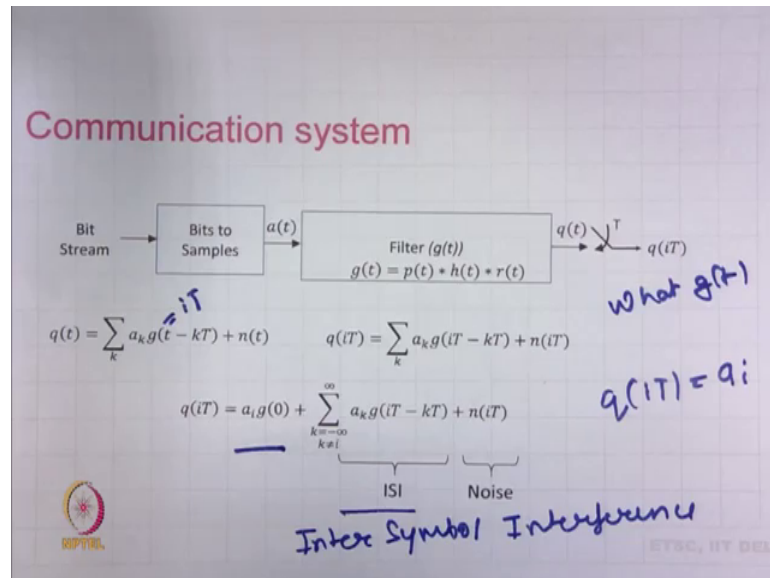 Communication system
Bit Stream
Bits to Samples
a(t)
Filter (g(t))
g(t) = p(t) * h(t) * r(t)
q(t)
T
q(iT)
What g(t)
= iT
q(t) = ∑_k a_k g(t − kT) + n(t)
q(iT) = ∑_k a_k g(iT − kT) + n(iT)
q(iT) = a_i g(0) + ∑_{k=−∞, k≠i}^{∞} a_k g(iT − kT) + n(iT)
q(iT) = a_i
ISI
Noise
Inter Symbol Interference
NPTEL
ETSC, IIT DEL